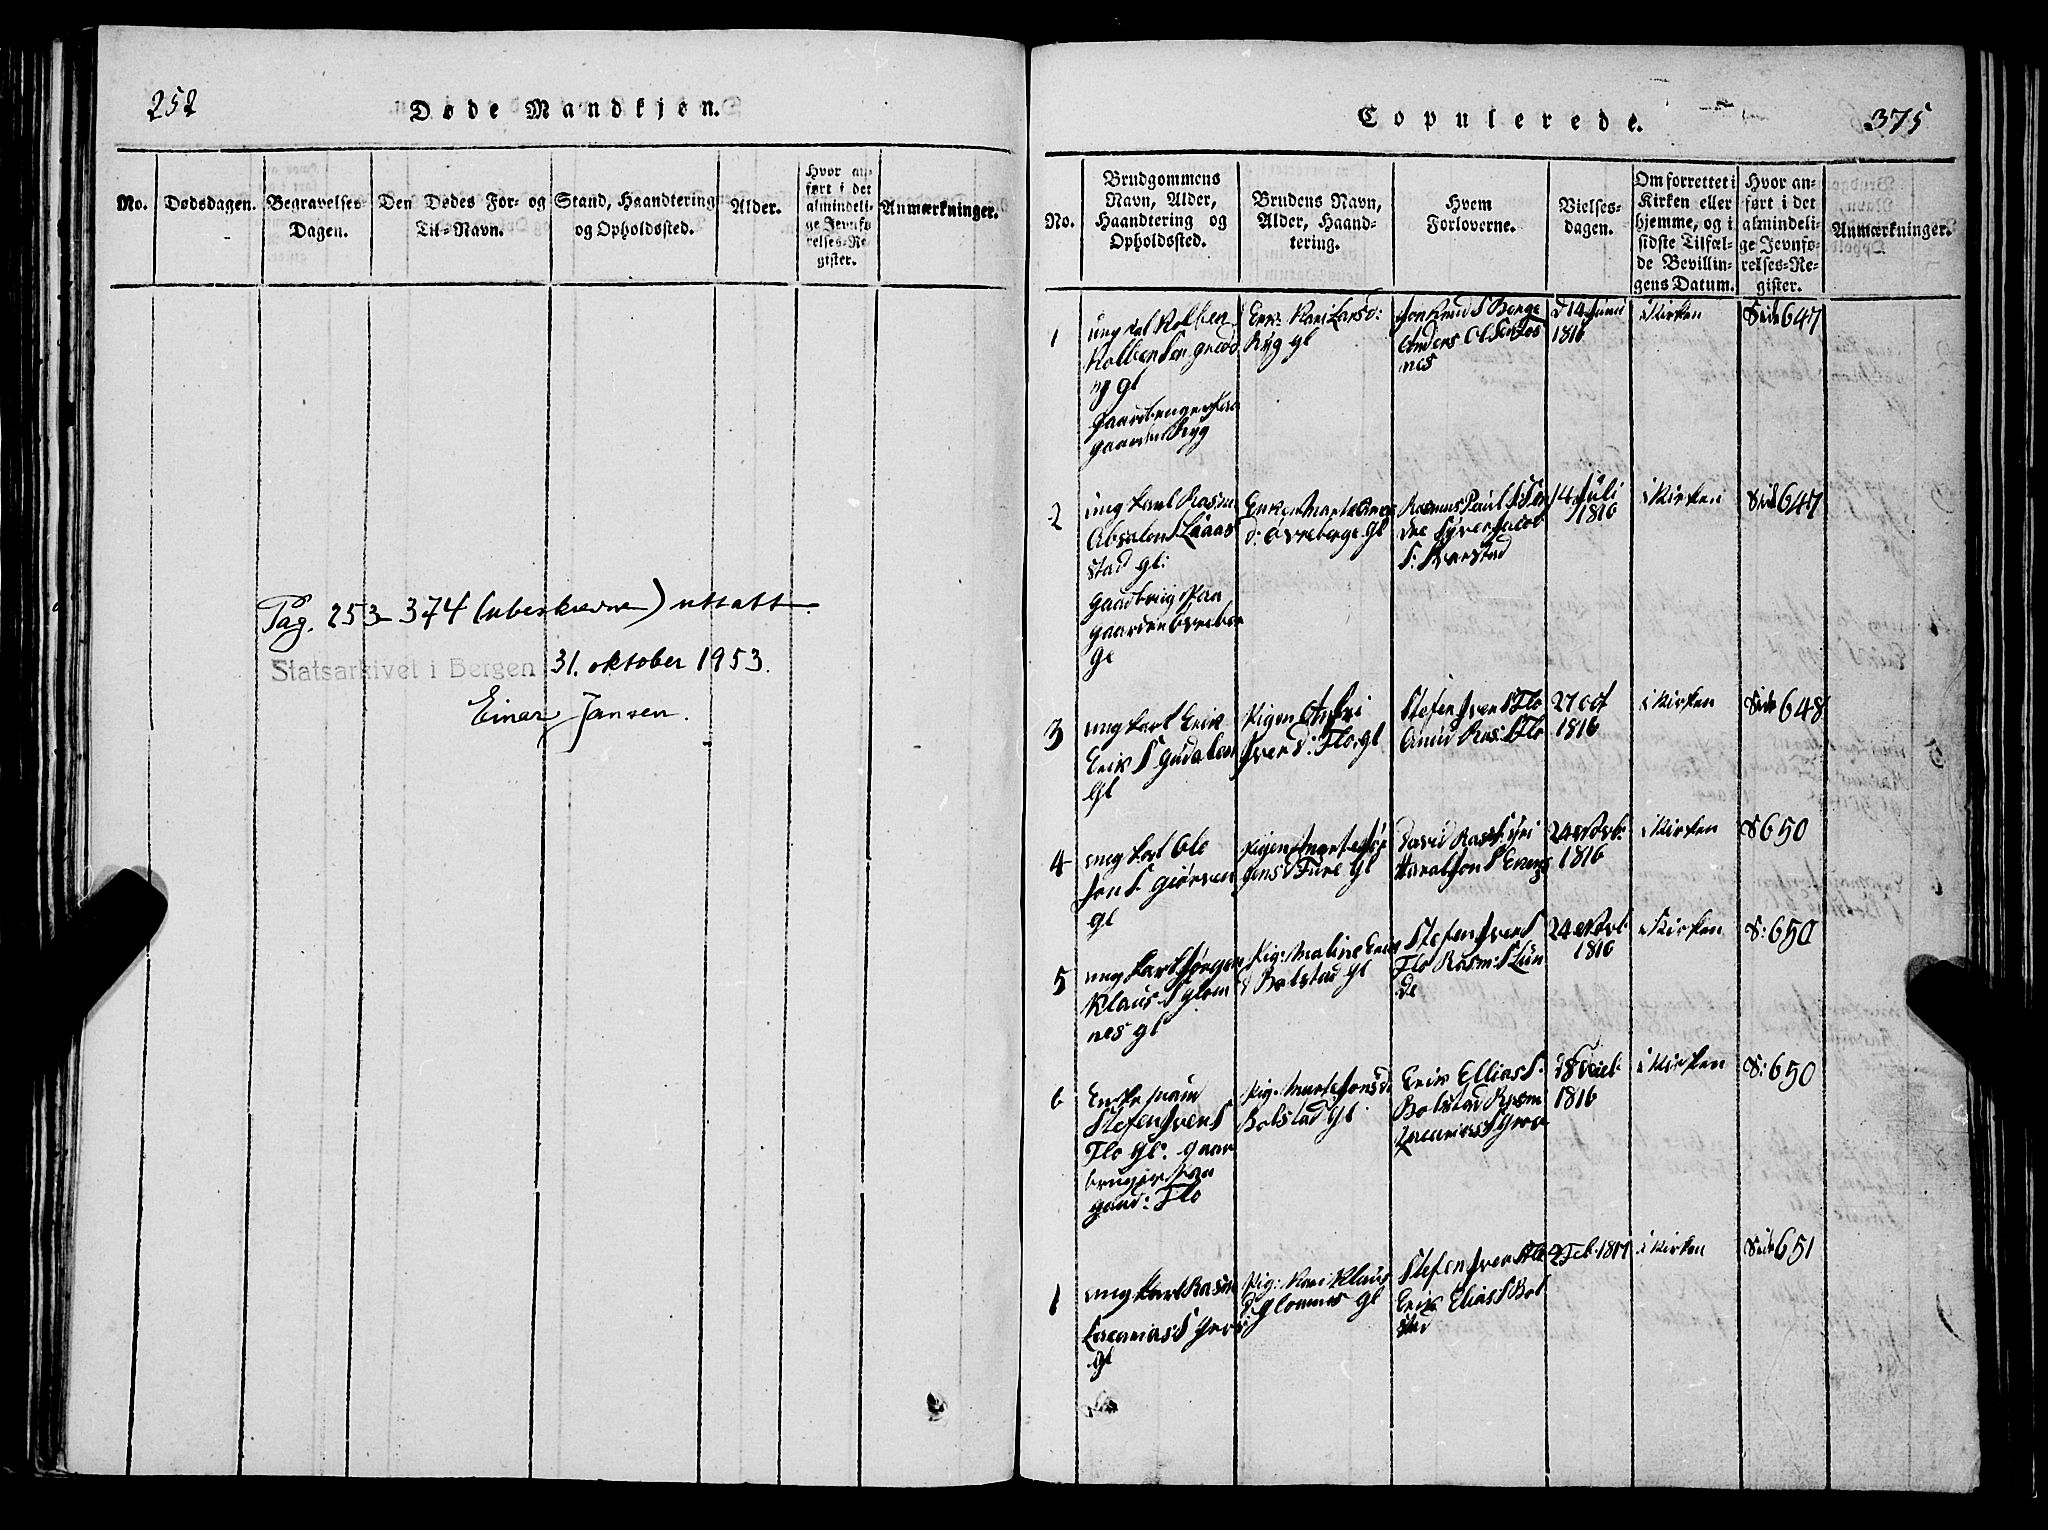 252
Døde Mandkjøn.
No.
Dødsdagen.
Begravelses-
Dagen.
Den Dødes For- og
Til-Navn.
Stand, Haandtering
og Opholdssted.
Alder.
Hvor an-
ført i det
almindeli-
ge Jevnfø-
relses-Re-
gister.
Anmærkninger.
Pag. 253-374 (ubeskrevne) uttatt
Statsarkivet i Bergen 31. oktober 1953.
Einar Jansen.
Copulerede.
375
No.
Brudgommens
Navn, Alder,
Haandtering og
Opholdssted.
Brudens Navn,
Alder, Haand-
tering.
Hvem
Forloverne.
Vielses-
dagen.
Om forrettet i
Kirken eller
hjemme, og i
sidste Tilfæl-
de Bevillin-
gens Datum.
Hvor an-
ført i det
almindeli-
ge Jevnfø-
relses-Re-
gister.
Anmærkninger.
1
ung kal Kolben
Kolben Sen
gl
gaarden Ryg
Enk: Kari Larsd:
Ryg gl
Anders
nes
d 14 Juni
1816
i Kirken
Side 647
2
ung karl Rasm
Absalon S Laaas
stad gl:
gaarden
gl
Enken Marte
d: Øvreberge gl
Rasmus Paul S:
14 Juli
1816
i Kirken
Side 647
3
ung karl Erik
Erik S gudalen
gl
Pigen
Iver d: Flo gl
Stefen Iver S Flo
Anud Ras: S Flo
27 oct
1816
i Kirken
Side 648
4
ung karl Ole
Jon S. giørven
gl
Pigen Marte
Fure gl
David Ras
24 Novb:
1816
i Kirken
S 650
5
ung karl Jørgen
Klaus S glom
nes gl
Pig: Maline Erik
d Bolstad gl
Stefen Iver S
Flo Rasm: S Lun
de
24 Novb:
1816
i Kirken
S: 650
6
Enke man
Stefen Iver S
Flo gl: gaar
bruger paa
gaard: Flo
Pig: Marte Jons d:
Bolstad gl
Erik Ellias S.
Bolstad Rasm
Zacarias S Grov
1816
i Kirken
S: 650
1
ung karl Rasm
Zacarias S Grov
gl
Pig: Kari Klaus
d: glomnes gl
Stefen Iver S Flo
Erik Elias S Bol
stad
2 Feb 1817
i Kirken
Side 651